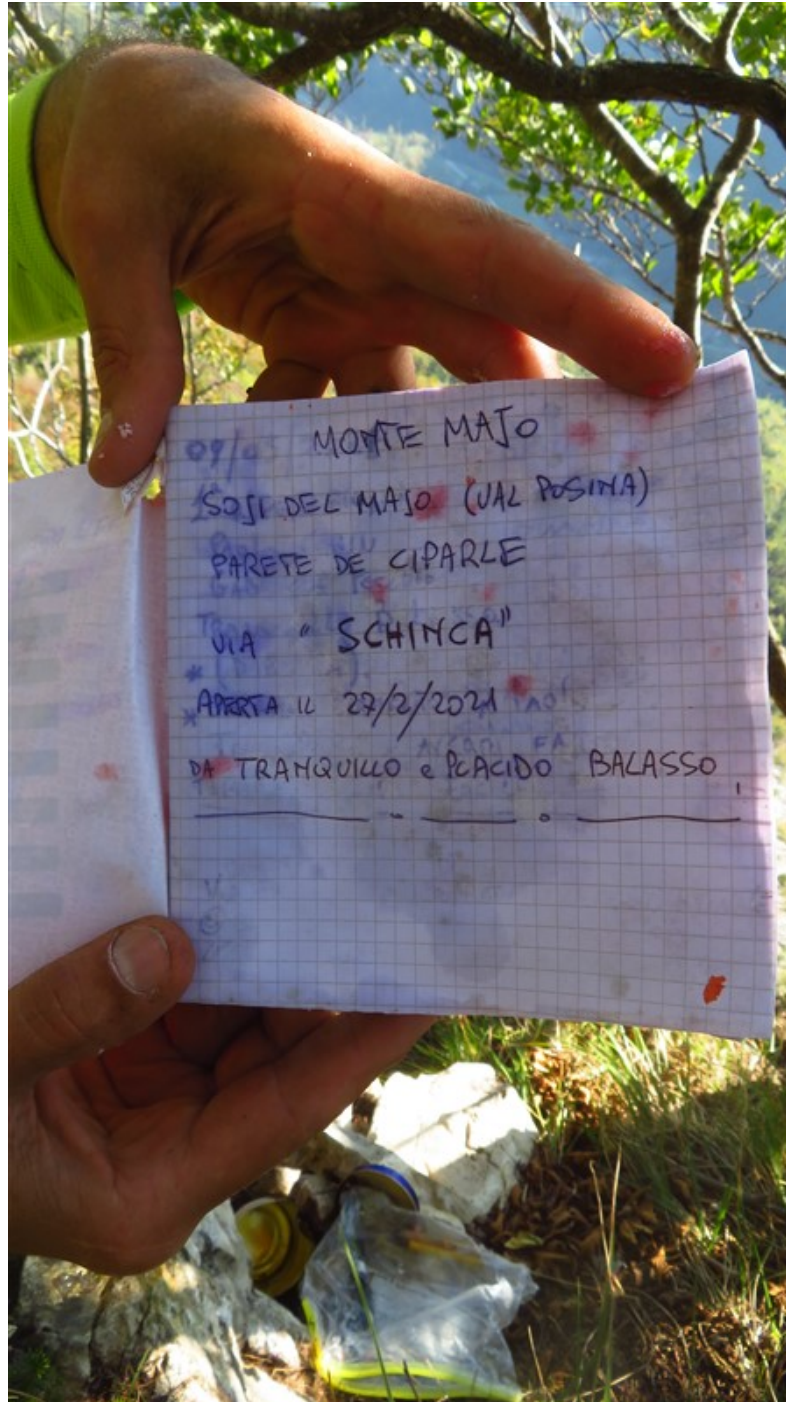 MONTE MAJO
SOJI DEL MAJO (VAL POSINA)
PARETE DE CIPARLE
VIA "SCHINCA"
APERTA IL 27/2/2021
DA TRANQUILLO e PLACIDO BALASSO